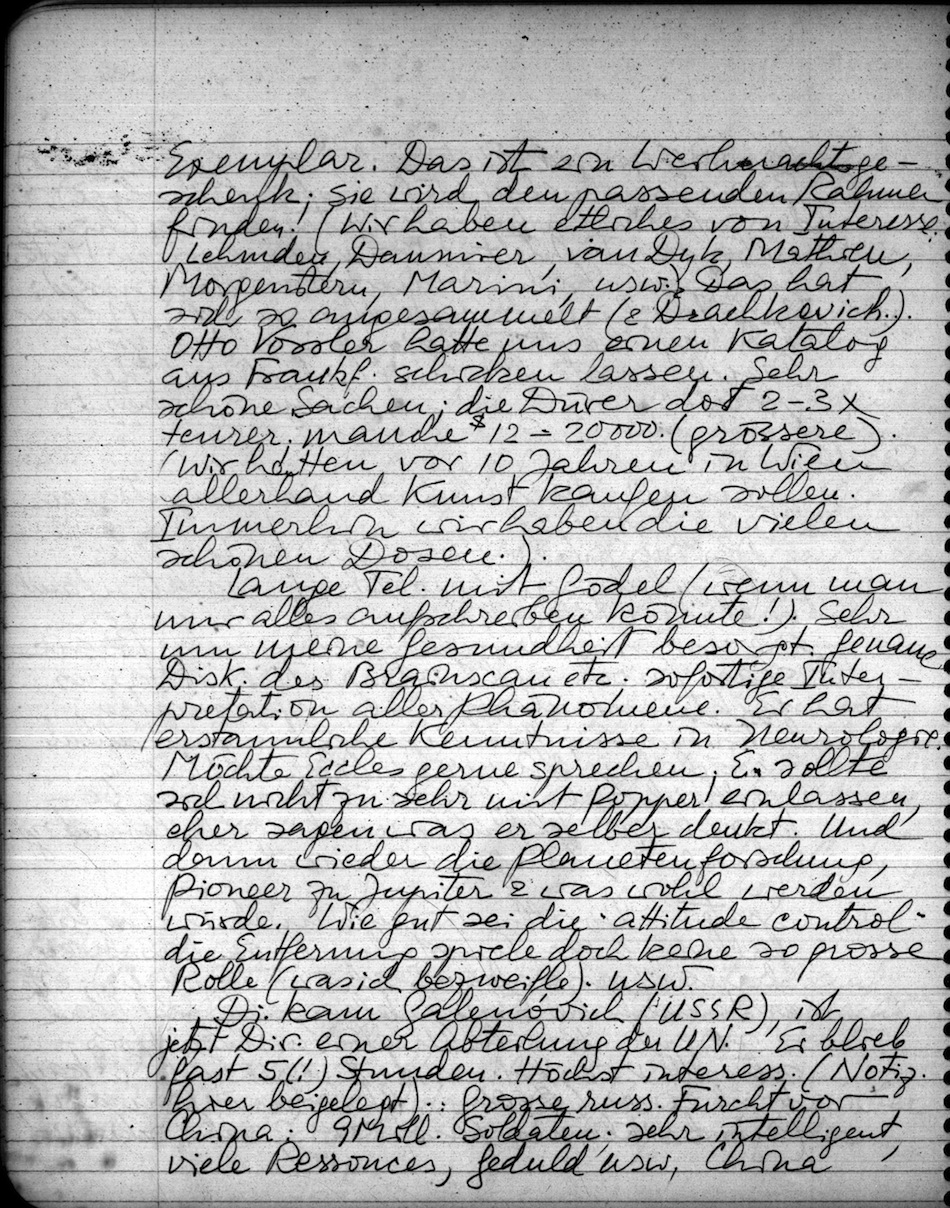 Exemplar. Das ist ein Weihnachtsge-
schenk; sie wird den passenden Rahmen
finden! (Wir haben etliches von Interesse.
Lehmden, Daumier, van Dyk, Mathieu,
Morgenstern, Marini, usw. Das hat
sich so angesammelt (& Drachkovich.).
Otto Vossler hatte uns einen Katalog
aus Frankf. schicken lassen. Sehr
schöne Sachen; die Dürer dort 2-3x
teurer. manche $12-20000. (grössere).
(Wir hätten vor 10 Jahren in Wien
allerhand Kunst kaufen sollen.
Immerhin wir haben die vielen
schönen Dosen.).
Lange Tel. mit Gödel (wenn man
nur alles aufschreiben könnte!). Sehr
um meine Gesundheit besorgt. genaue
Disk. des Brainscan etc. sofortige Inter-
pretation aller Phänomene. Er hat
erstaunliche Kenntnisse in Neurologie.
Möchte Eccles gerne sprechen; E. sollte
sich nicht zu sehr mit Popper einlassen,
eher sagen was er selber denkt. Und
dann wieder die Planetenforschung,
Pioneer zu Jupiter & was wohl werden
würde. Wie gut sei die "attitude control"
die Entfernung spiele doch keine so grosse
Rolle (was ich bezweifle). usw.
Di. kam Galenovich (USSR), ist
jetzt Dir. einer Abteilung der UN. Er blieb
fast 5(!) Stunden. Höchst interess. (Notiz
hier beigelegt).: Grosse russ. Furcht vor
China: 9 Mill. Soldaten. sehr intelligent,
viele Ressources, Geduld usw, China